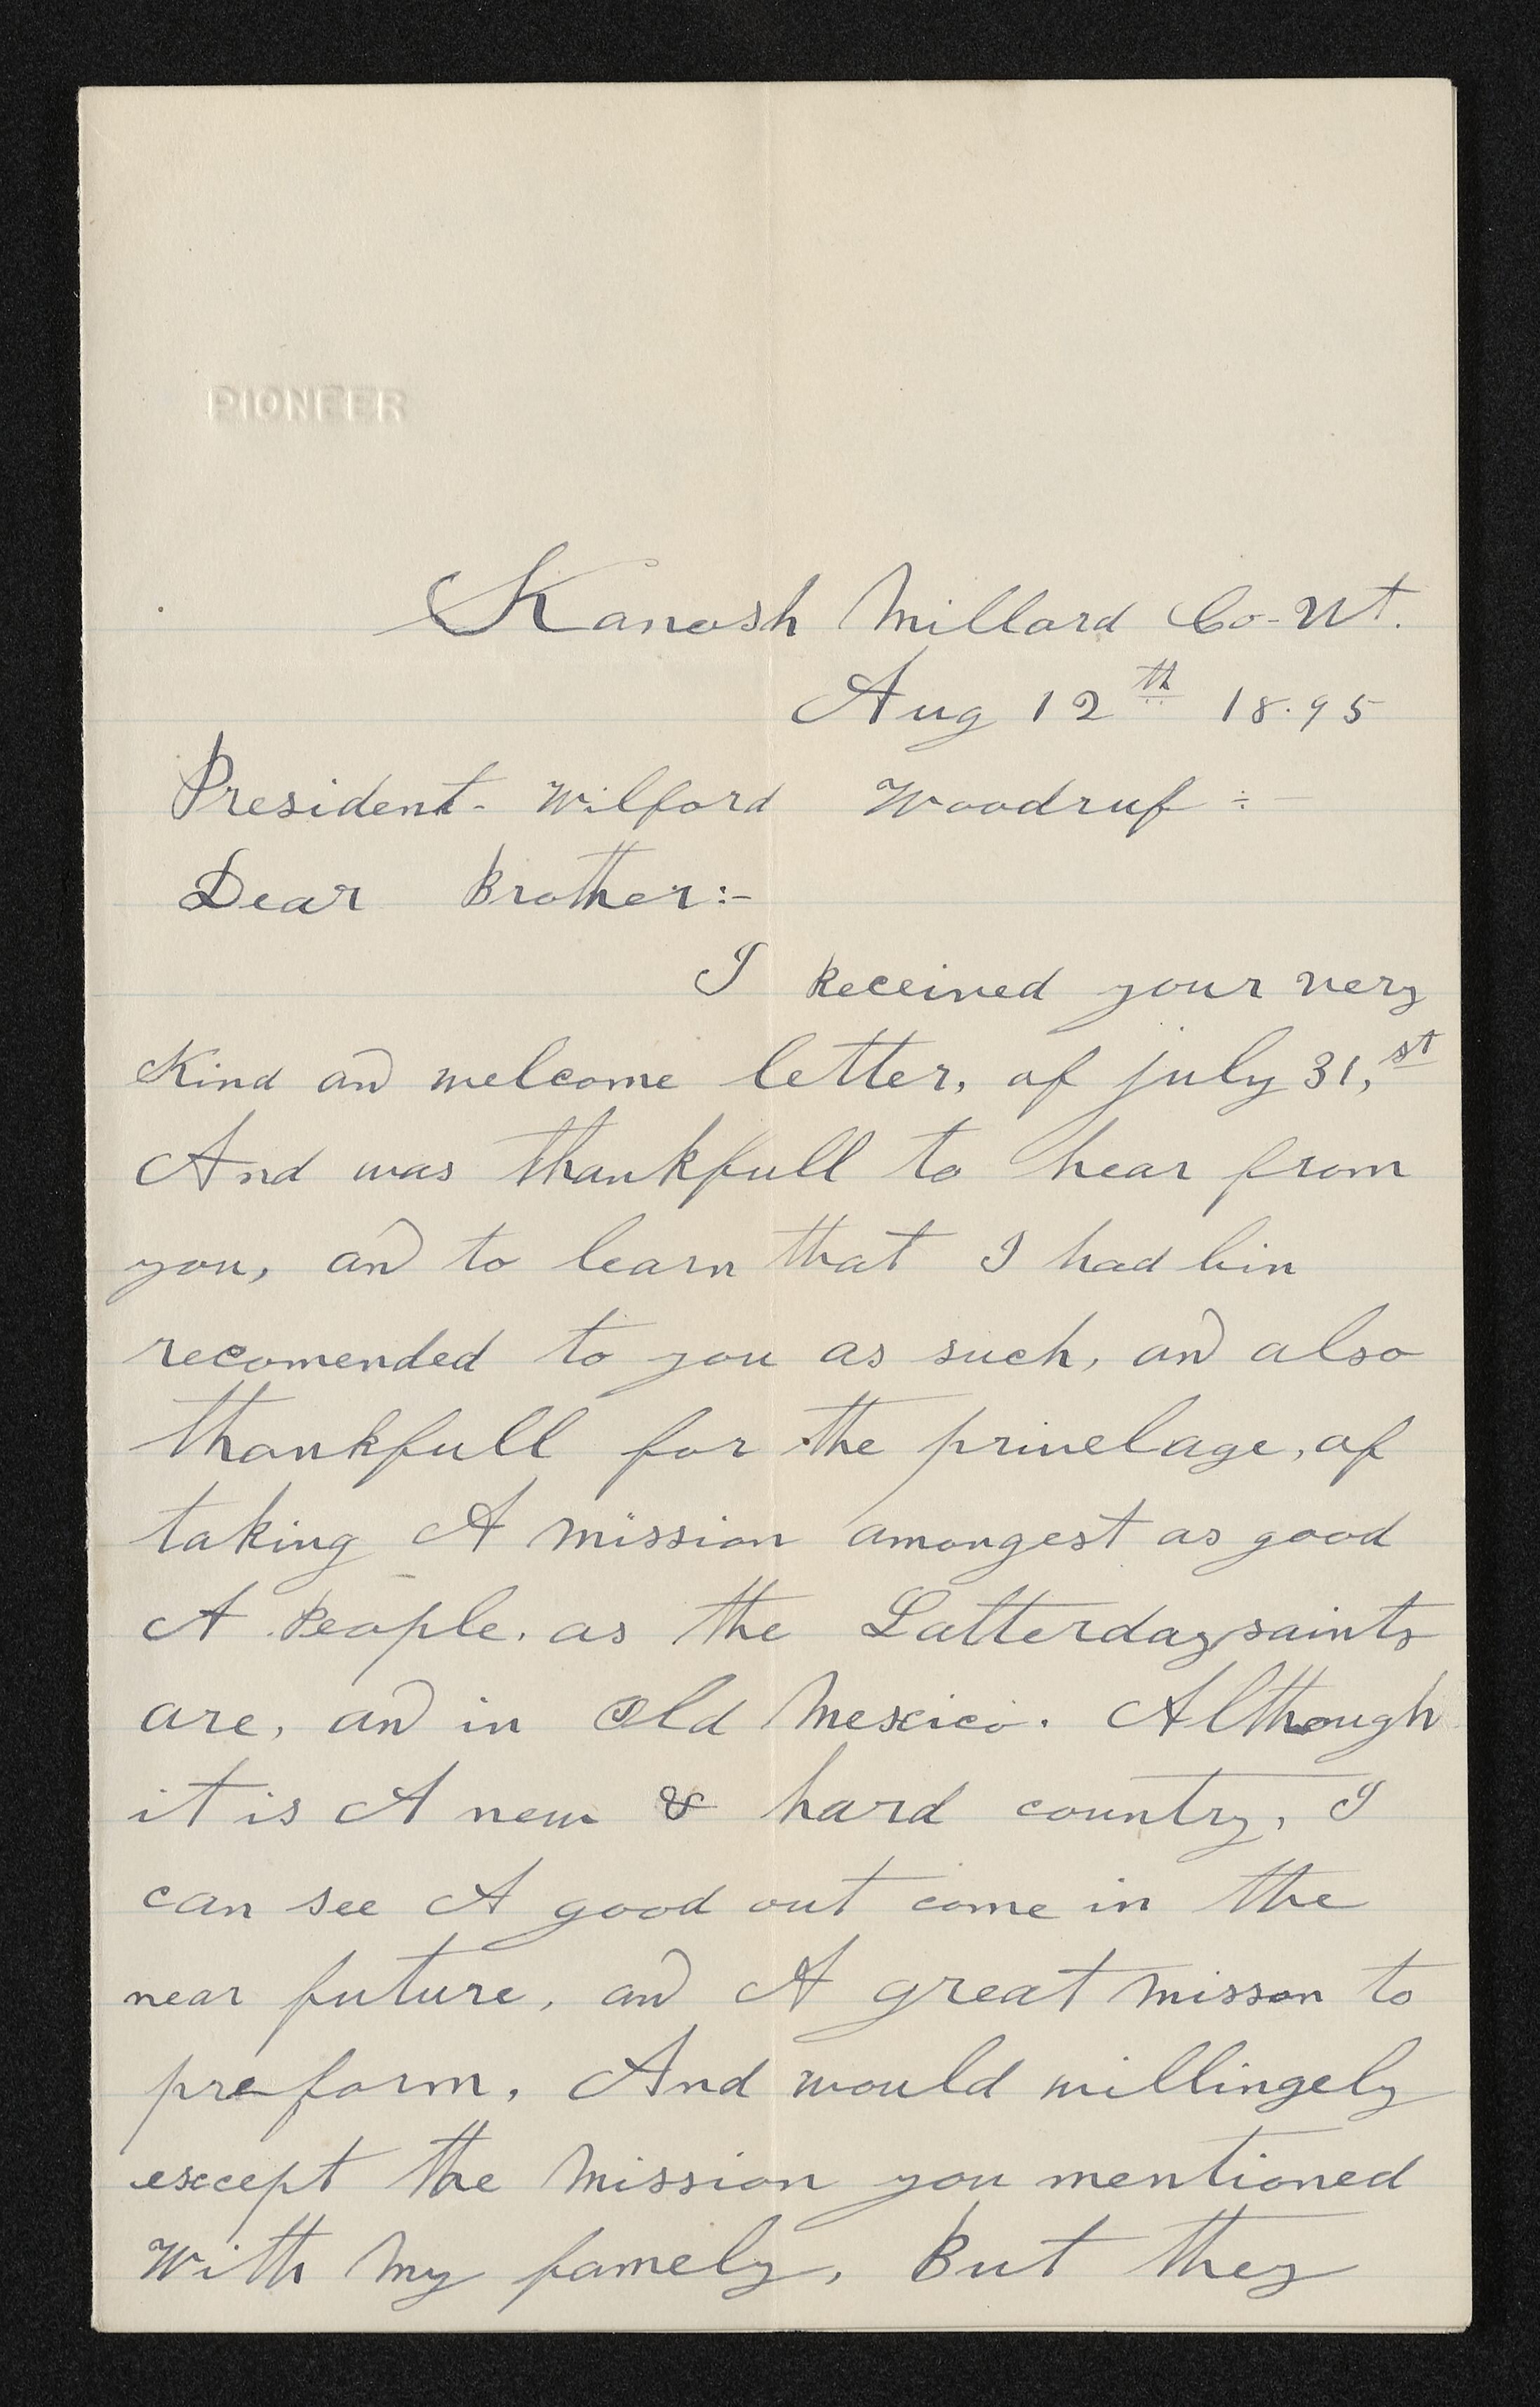 PIONEER
Kanosh Millard Co-Ut.
Aug 12th 18.95
President- Wilford Woodruf :-
Dear Brother:-
I Received your very
Kind and welcome letter, of july 31,st
And was thankfull to hear from
you, and to learn that I had bin
recomended to you as such, and also
thankfull for the privelage, of
taking A mission amongest as good
A People. as the Latterdaysaints
are, and in Old Mexico. Although
it is A new & hard country, I
can see A good out come in the
near future, and A great misson to
preform, And would willingely
except the Mission you mentioned
With My famely, But they